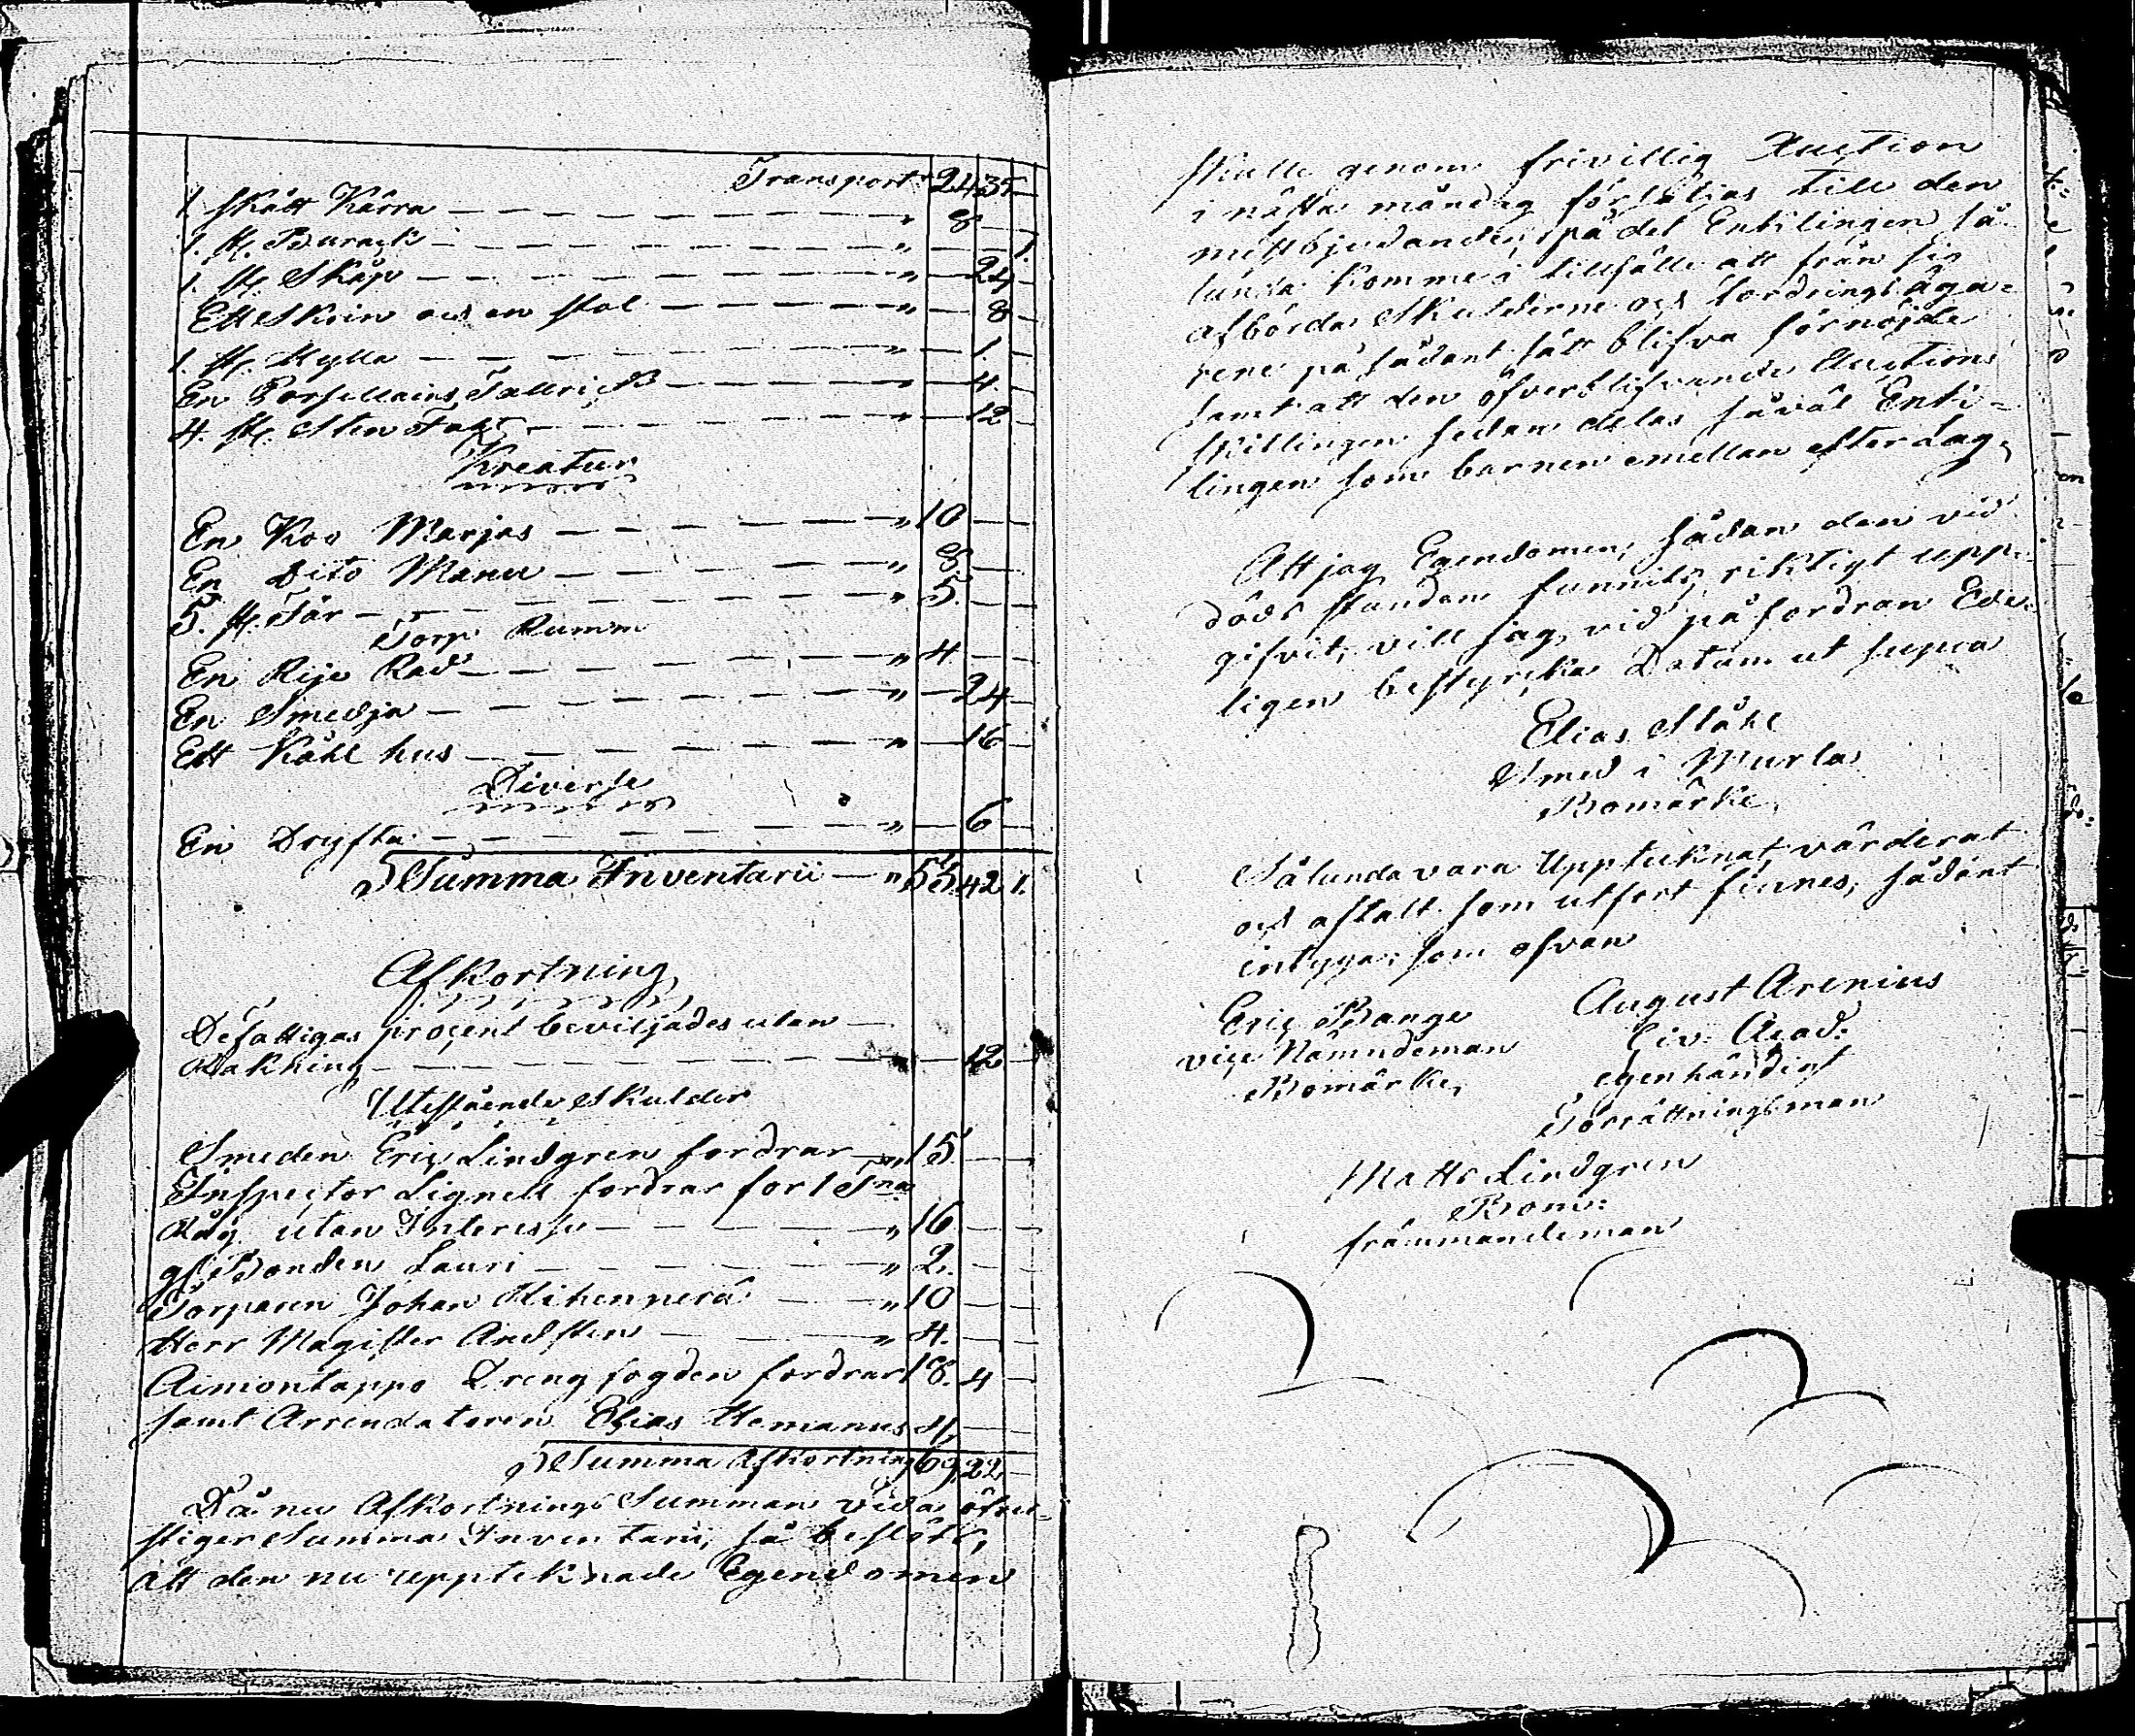 Transport " 24 35 —
1 skått Kärra — — — " 8 — —
1. st. Burack — — — " — — 1.
1. st. Skåp — — — " — 24 —
Ett Skrin och en stol — — — " — 8 —
1. st. Hylla — — — " — 1. —
En Porsellains Tallrick — — — " — 4. —
4. st. Sten Fat — — — " — 12 —
Kreatur
En Koo Marjas — — — " 10 — —
En Dito Manu — — — " 8. — —
5. st. Får — — — " 5. — —
Torp Rumm
En Rije Rad — — — " 4 — —
En Smedja — — — " — 24 —
Ett Kåhl hus — — — " — 16 —
Diverse
En Dryfta — — — " — 6 —
Summa Inventarii — " 55 42 1.
Afkortning
Defattigas procent beviljades utan —
Räkning — — — " — 12 —
Utestående Skulder
Smeden Eric Lindgren fordrar — " 15. — —
Inspector Lignell fordrar for 1 Tna
Råg utan Interesse — — — " 16 — —
gl. Bonden Lauri — — — " 2. — —
Torparen Johan Hihennerä — — " 10 — —
Herr Magister Andsten — — " 4. — —
Aimontappo Dreng fogden fordrar 18. 4 —
samt Arrendatoren Elias Hemanus 4. — —
Summa Afkortning 69 22 —
Då nu Afkortnings Summan vida öfver-
stiger Summa Inventarii, så beslöts,
att den nu uppteknade Egendomen
skulle genom frivillig Auction
i nästa måndag försäljas till den
mestbjudande, på det Enklingen så-
lunda komme i tillfälle att från sig
afbörda Skulderne och fordringsäga-
rene på sådant sätt blifva förnöjde
samt att den öfverblifvande Auctions
Skillingen sedan delas såväl Enk-
lingen som barnen emellan efter Lag,
Att jag Egendomen, sådan den vid
döds stunden funnits, riktigt upp-
gifvit, vill jag, vid påfordran Ede-
ligen bestyrka Datum ut supra
Elias Ståhl
Smed i Murla
Bomärke,
Sålunda vara Uppteknat, värderat
och aftalt som utfört finnes, sådant
intygga, som ofvan
Eric Bange August Arenius
vice Nämndeman Civ: Acad:
Bomärke, egenhändigt
Förrättningsman
Matts Lindgren
Bom:
främmandeman